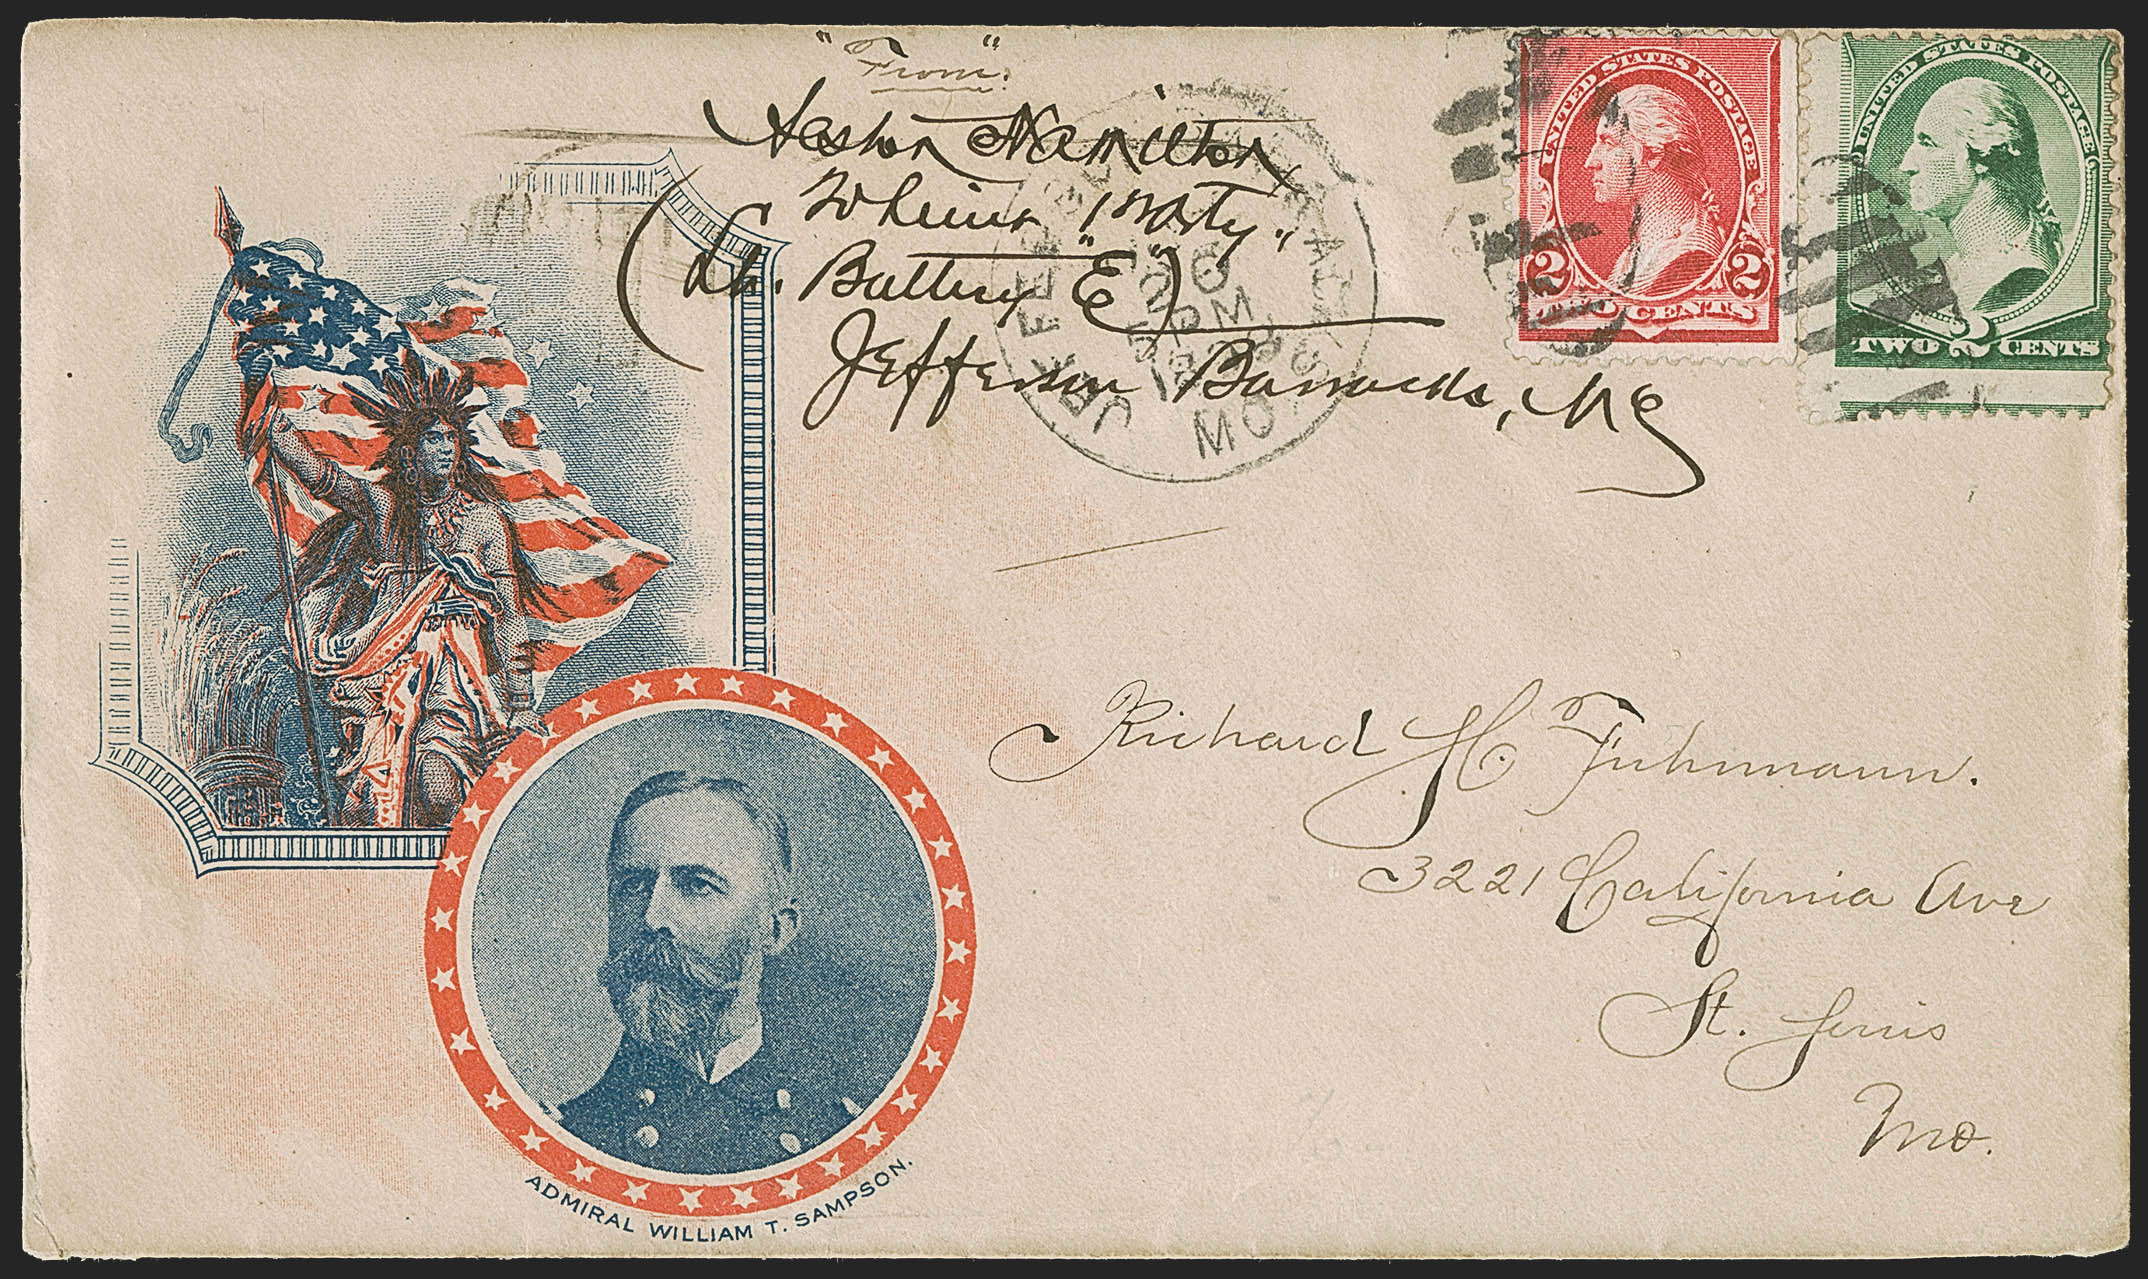 "From":
Hamilton,
Battery "E")
Jefferson Barracks, Mo
JEFFERSON BARRACKS
26
PM
MO.
UNITED STATES POSTAGE
2 2
TWO CENTS
UNITED STATES POSTAGE
2
TWO CENTS
Richard H. Fuhrmann.
3221 California Ave
St. Louis
Mo.
ADMIRAL WILLIAM T. SAMPSON.